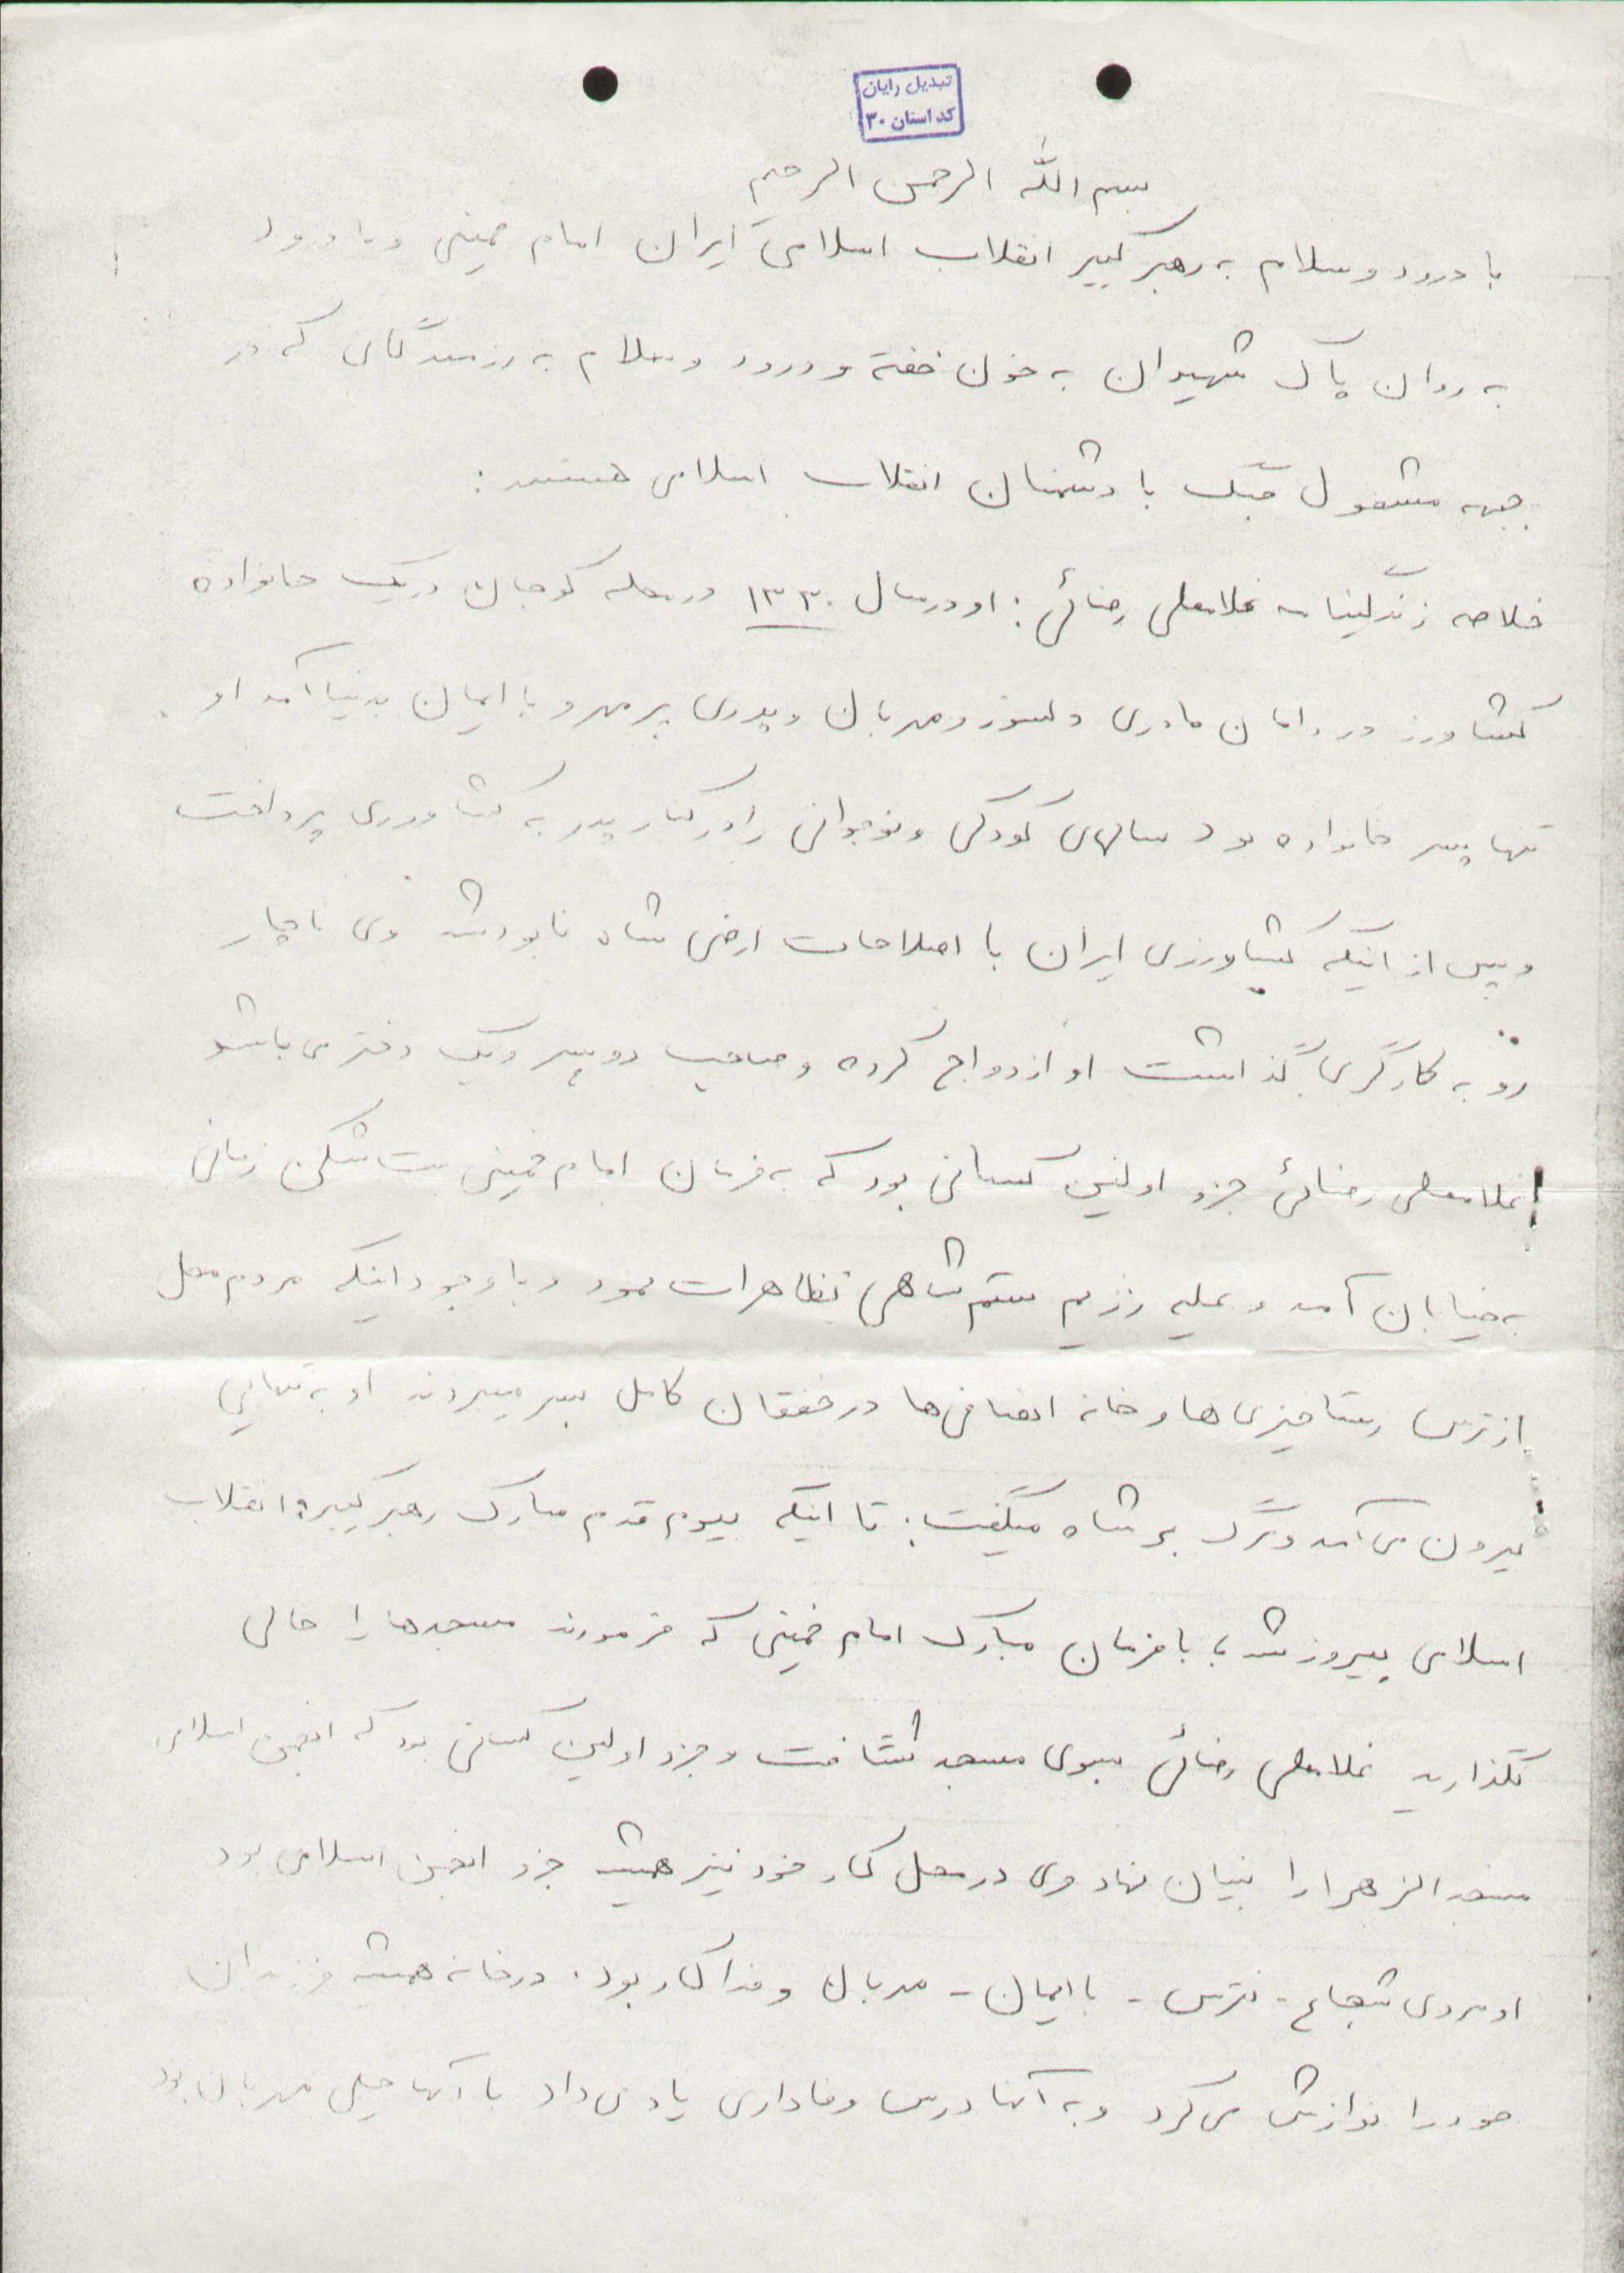 تبدیل رایان
کد استان ۳۰
بسم الله الرحمن الرحیم
با درود و سلام به رهبر کبیر انقلاب اسلامی ایران امام خمینی و با درود
به روان پاک شهیدان به خون خفته و درود و سلام به رزمندگانی که در
جبهه مشغول جنگ با دشمنان انقلاب اسلامی هستند:
خلاصه زندگینامه غلامعلی رضائی: او در سال ۱۳۳۰ در محله کوجان در یک خانواده
کشاورز در دامان مادری دلسوز و مهربان و پدری پر مهر و با ایمان بدنیا آمد او
تنها پسر خانواده بود سالهای کودکی و نوجوانی را در کنار پدر به کشاورزی پرداخت
و پس از اینکه کشاورزی ایران با اصلاحات ارضی شاه نابود شد وی ناچار
رو به کارگری گذاشت او ازدواج کرده و صاحب دو پسر و یک دختر می باشد
غلامعلی رضائی جزو اولین کسانی بود که به فرمان امام خمینی بت شکن زمانی
به خیابان آمد و علیه رژیم ستم شاهی تظاهرات نمود و با وجود اینکه مردم محل
از ترس رستاخیزی ها و خانه انصافی ها در خفقان کامل بسر میبردند او به تنهایی
بیرون می آمد و مرگ بر شاه میگفت: تا اینکه بیوم قدم مبارک رهبر کبیر انقلاب
اسلامی پیروز شد، با فرمان مبارک امام خمینی که فرمودند مسجدها را خالی
نگذارید غلامعلی رضائی بسوی مسجد شتافت و جزو اولین کسانی بود که انجمن اسلامی
مسجد الزهرا را بنیان نهاد وی در محل کار خود نیز همیشه جزو انجمن اسلامی بود
او مردی شجاع - نترس - با ایمان - مهربان و فداکار بود. در خانه همیشه فرزندان
خود را نوازش می کرد و به آنها درس وفاداری یاد می داد با آنها خیلی مهربان بود